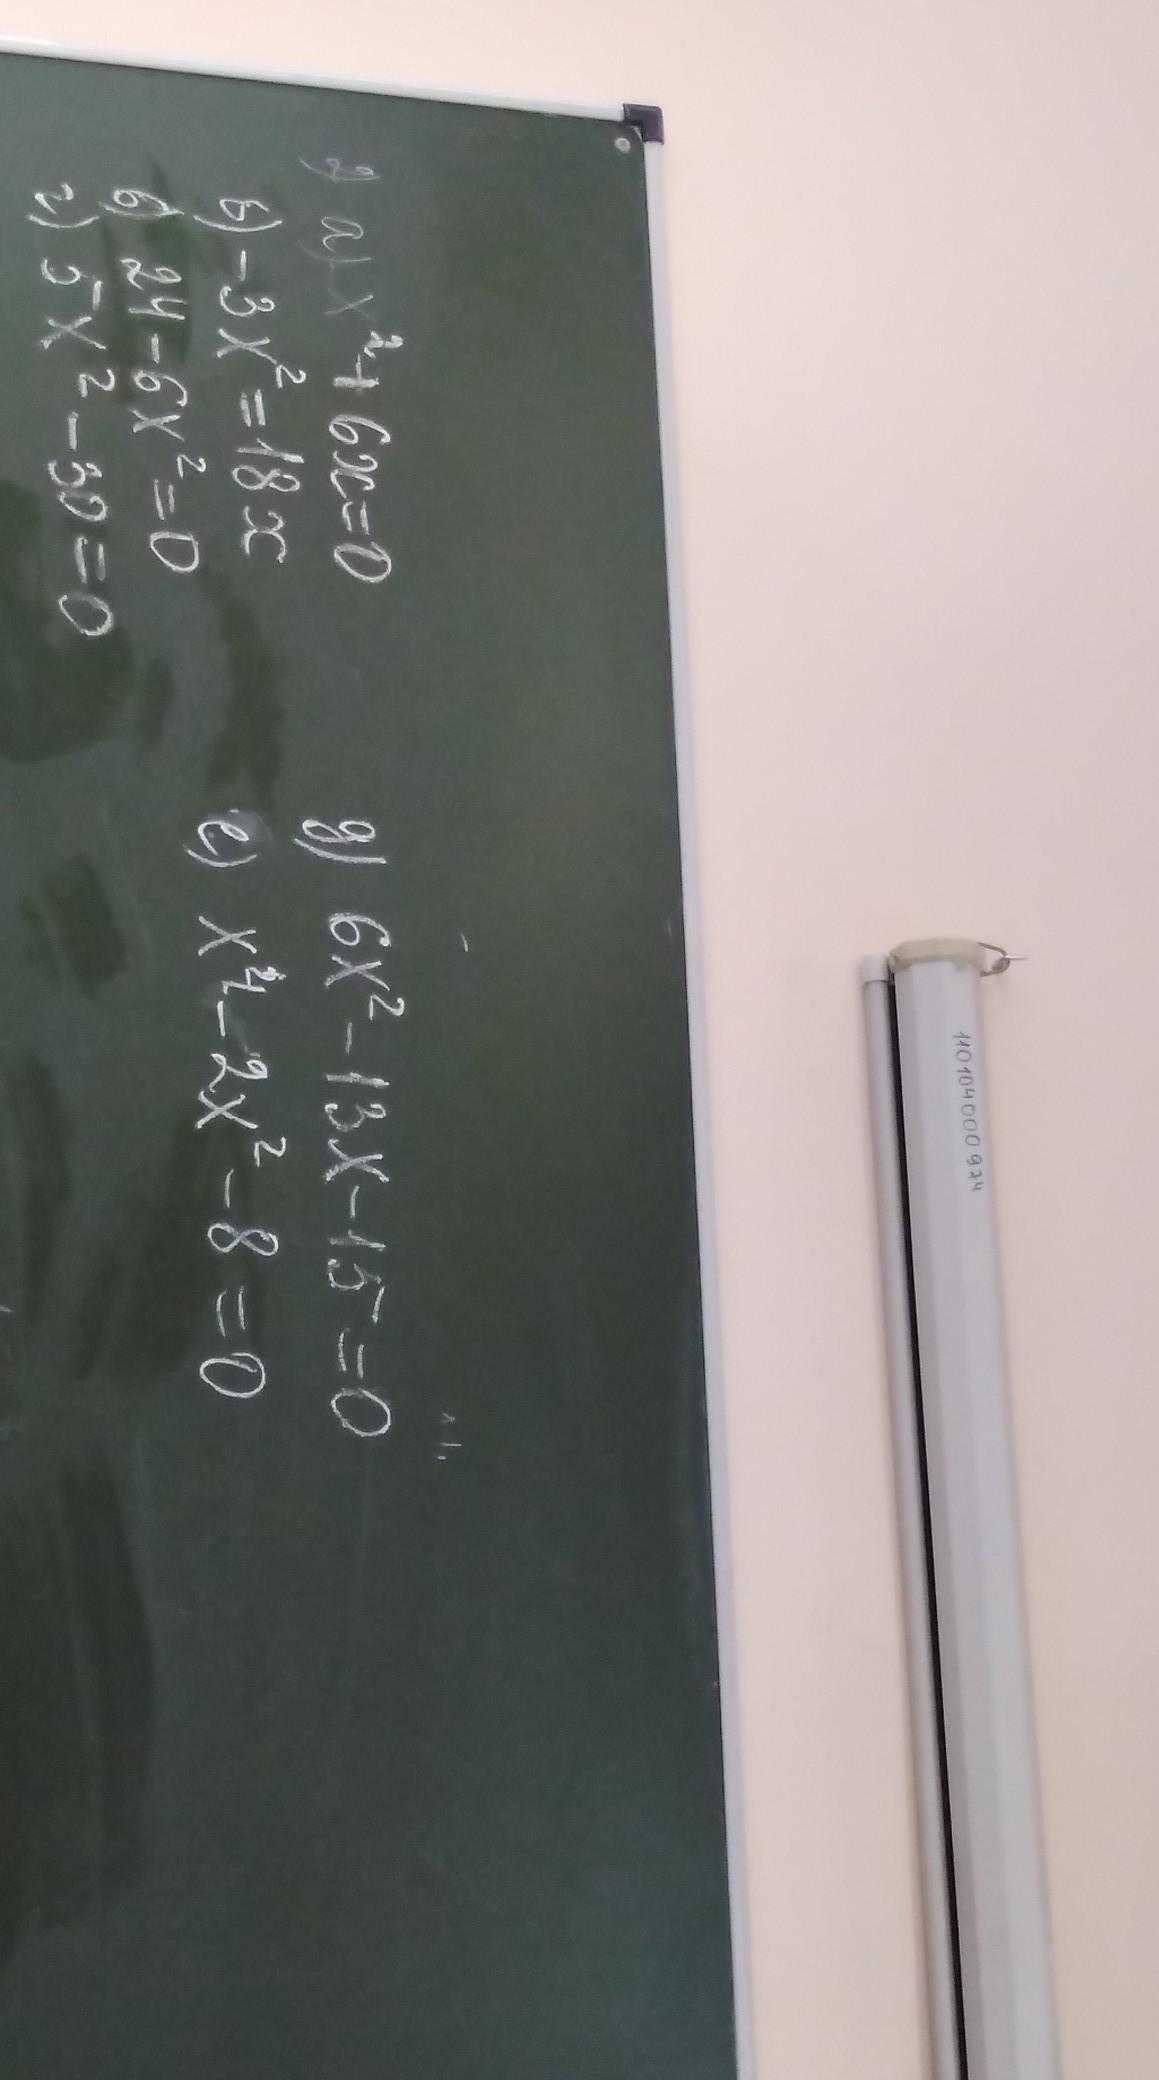 2) а) x² + 6x = 0
б) -3x² = 18x
в) 24 - 6x² = 0
г) 5x² - 30 = 0
д) 6x² - 13x - 15 = 0
е) x⁴ - 2x² - 8 = 0
110104000974